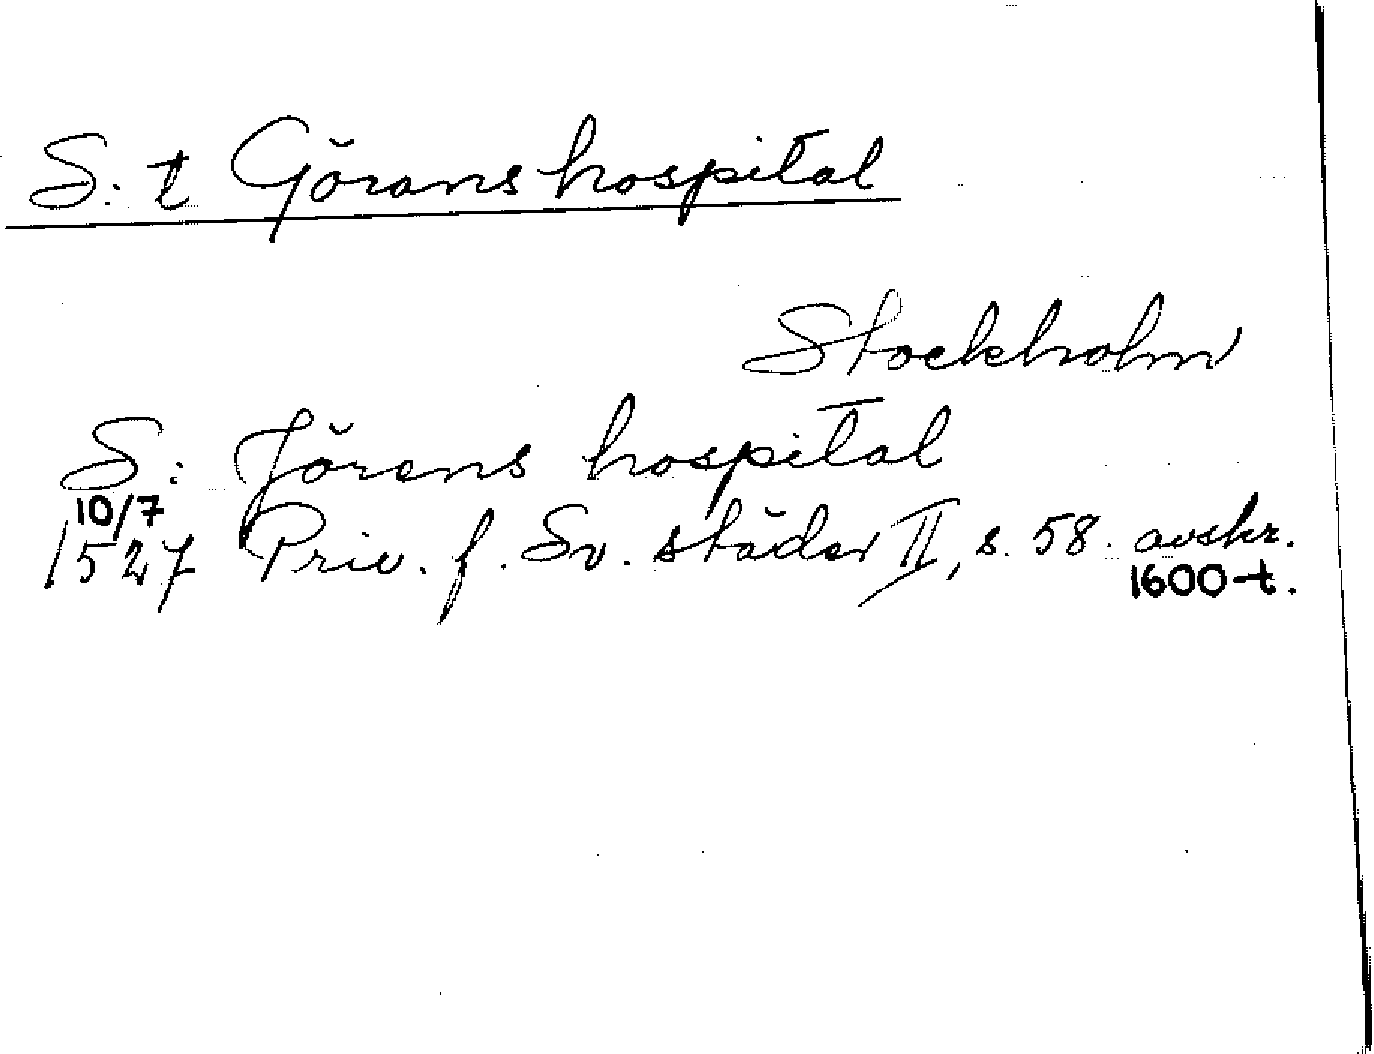 S:t Görans hospital
Stockholm
S: Jörens hospital
10/7
1527 Priv. f. Sv. städer II, s. 58. avskr.
1600-t.